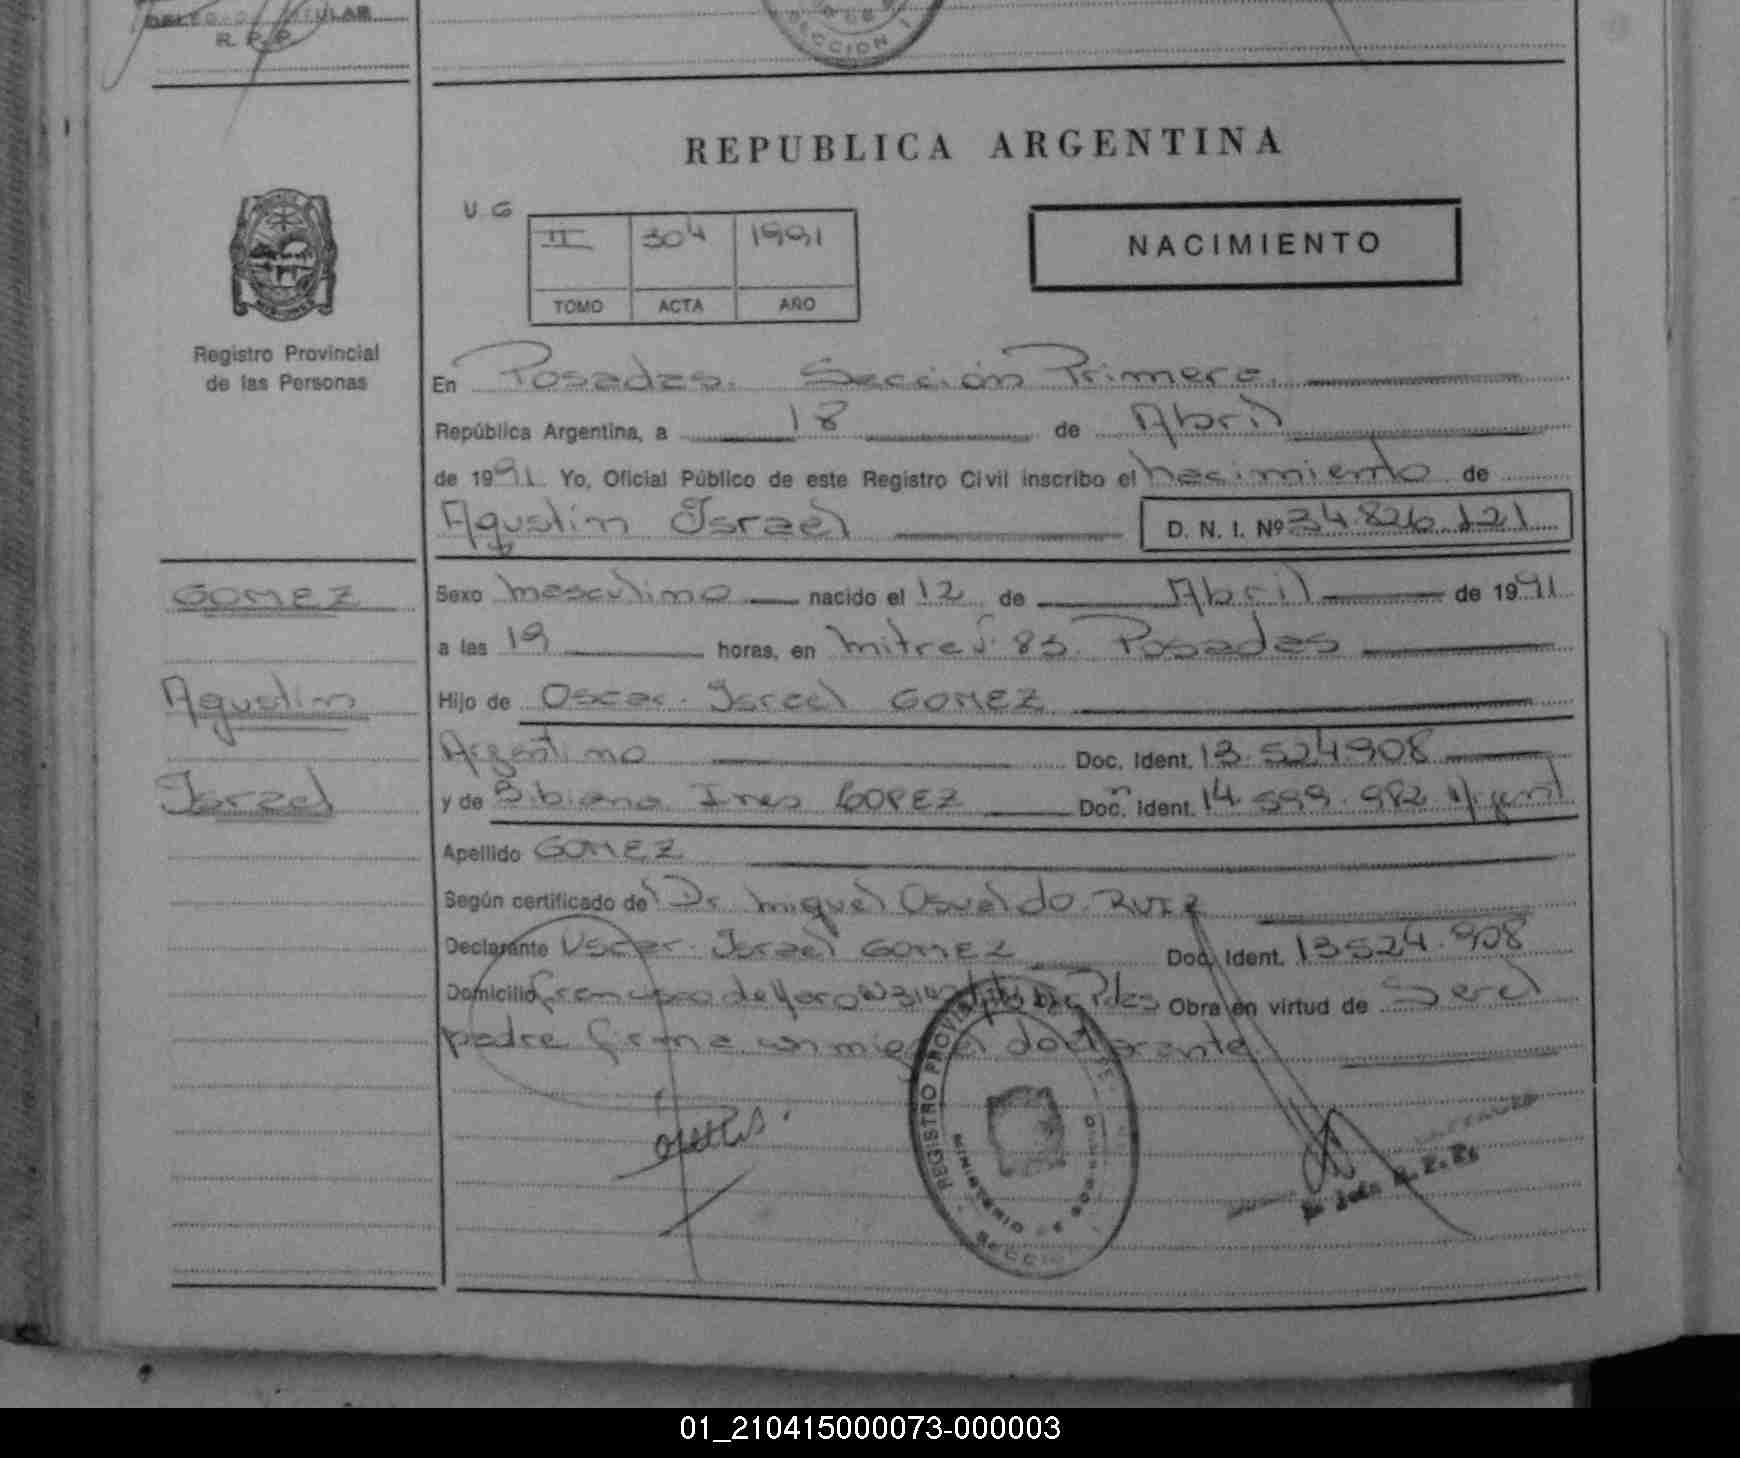 TITULAR
R. P. P.
SECCION 1
REPUBLICA ARGENTINA
U G
II 304 1991
TOMO ACTA AÑO
NACIMIENTO
Registro Provincial
de las Personas
En Posadas. Sección Primera
República Argentina, a 18 de Abril
de 1991 Yo, Oficial Público de este Registro Civil inscribo el nacimiento de
Agustín Israel D. N. I. Nº 34.826.121
GOMEZ
Agustin
Israel
Sexo masculino nacido el 12 de Abril de 1991
a las 19 horas, en Mitre 83. Posadas
Hijo de Oscar Israel GOMEZ
Argentino Doc. Ident. 13.524.908
y de Bibiana Ines LOPEZ Doc. Ident. 14.599.982 Argent
Apellido GOMEZ
Según certificado del Dr. Miguel Osvaldo RUIZ
Declarante Oscar Israel GOMEZ Doc. Ident. 13524.908
Domicilio Pdas Obra en virtud de Ser el
padre firma conmigo el declarante
REGISTRO PROVINCIAL
MINISTERIO DE GOBIERNO
SECCION
01_210415000073-000003